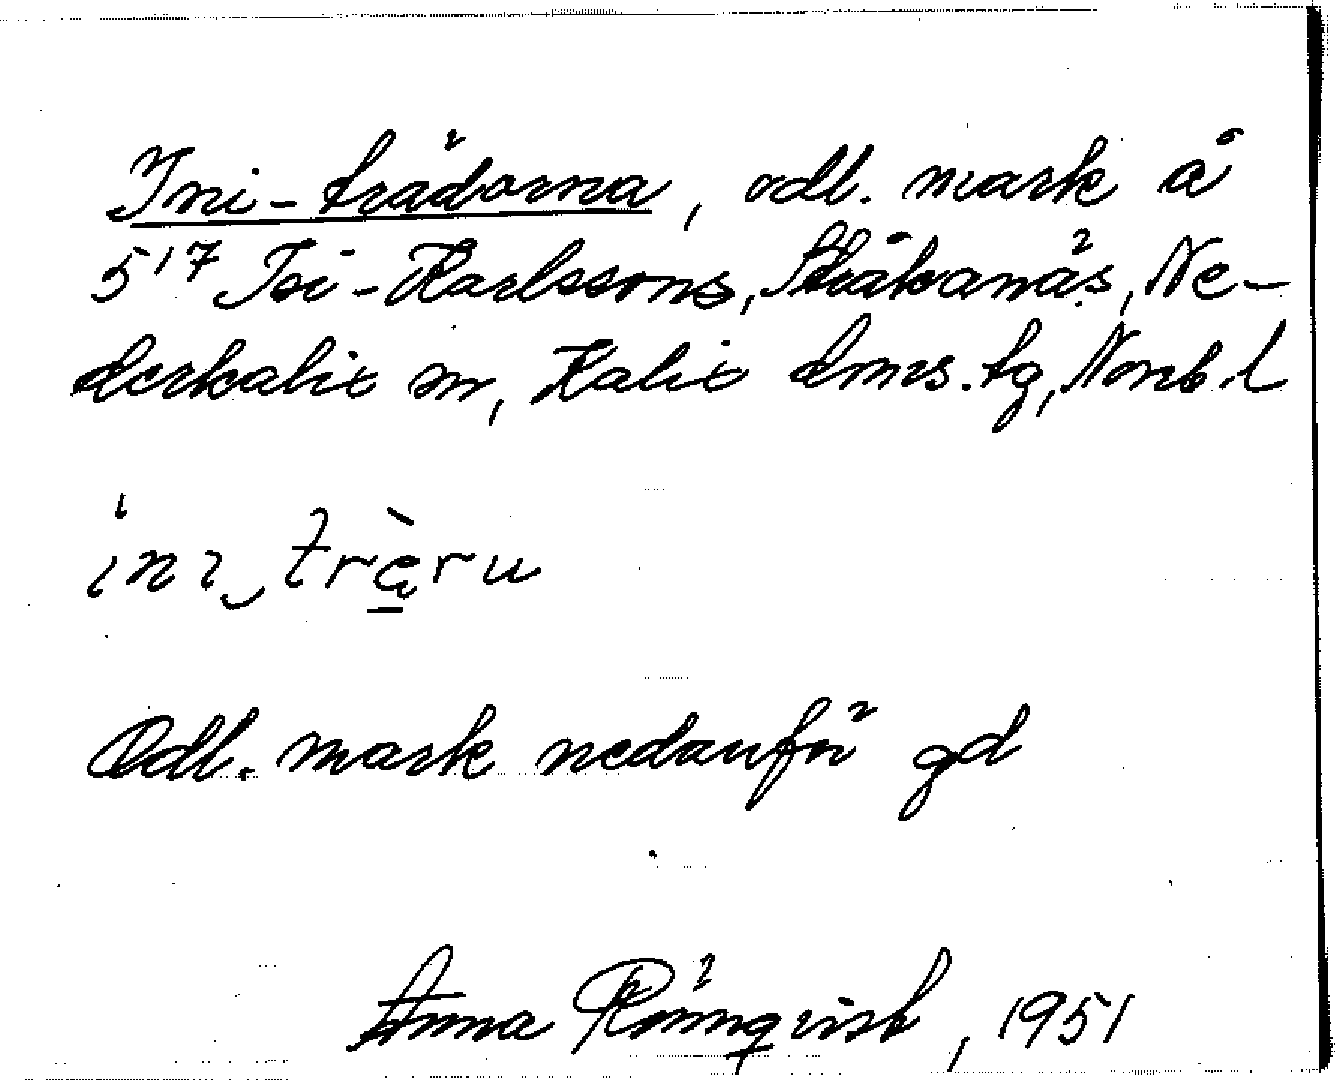 Ini-trädorna, odl. mark å
5¹⁷ Isi-Karlssons, Stråkanäs, Ne-
derkalix sn, Kalix doms. tg, Norrb. l
Odl. mark nedanför gd
Anna Rönnqvist, 1951